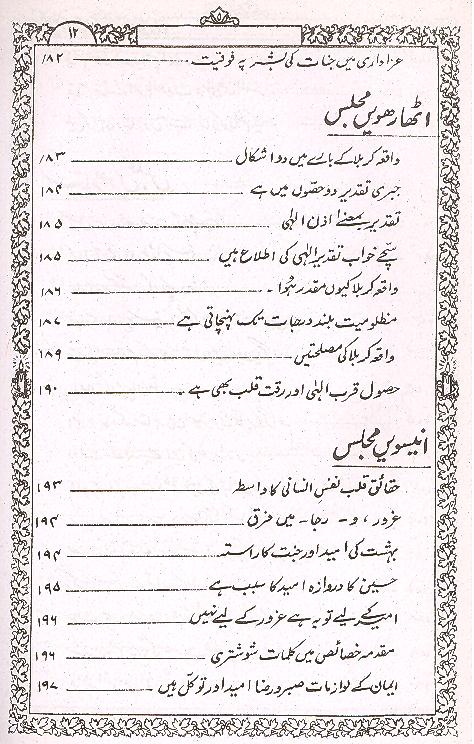 ۱۲
عزاداری میں جنات کی بشر پہ فوقیت ۱۸۲
اٹھارھویں مجلس
واقعہ کربلا کے بارے میں دو اشکال ۱۸۳
جبری تقدیر دو حصّوں میں ہے ۱۸۴
تقدیر بمعنے اذن الٰہی ۱۸۵
سچّے خواب تقدیر الٰہی کی اطلاع ہیں ۱۸۵
واقعہ کربلا کیوں مقدر ہُوا۔ ۱۸۶
مظلومیت بلند درجات تک پہنچاتی ہے ۱۸۷
واقعہ کربلا کی مصلحتیں ۱۸۹
حصول قرب الہٰی اور رقت قلب بھی ہے۔ ۱۹۰
انیسویں مجلس
حقائق قلب نفس انسانی کا واسطہ ۱۹۳
غرور، و۔ رجا۔ میں فرق ۱۹۴
بہشت کی امید اور جنت کا راستہ ۱۹۴
حسین کا دروازہ امید کا سبب ہے ۱۹۵
امید کے لیے توبہ ہے غرور کے لیے نہیں ۱۹۶
مقدمہ خصائص میں کلمات شوشتری ۱۹۶
ایمان کے لوازمات صبر و رضا امید اور توکل ہیں ۱۹۷